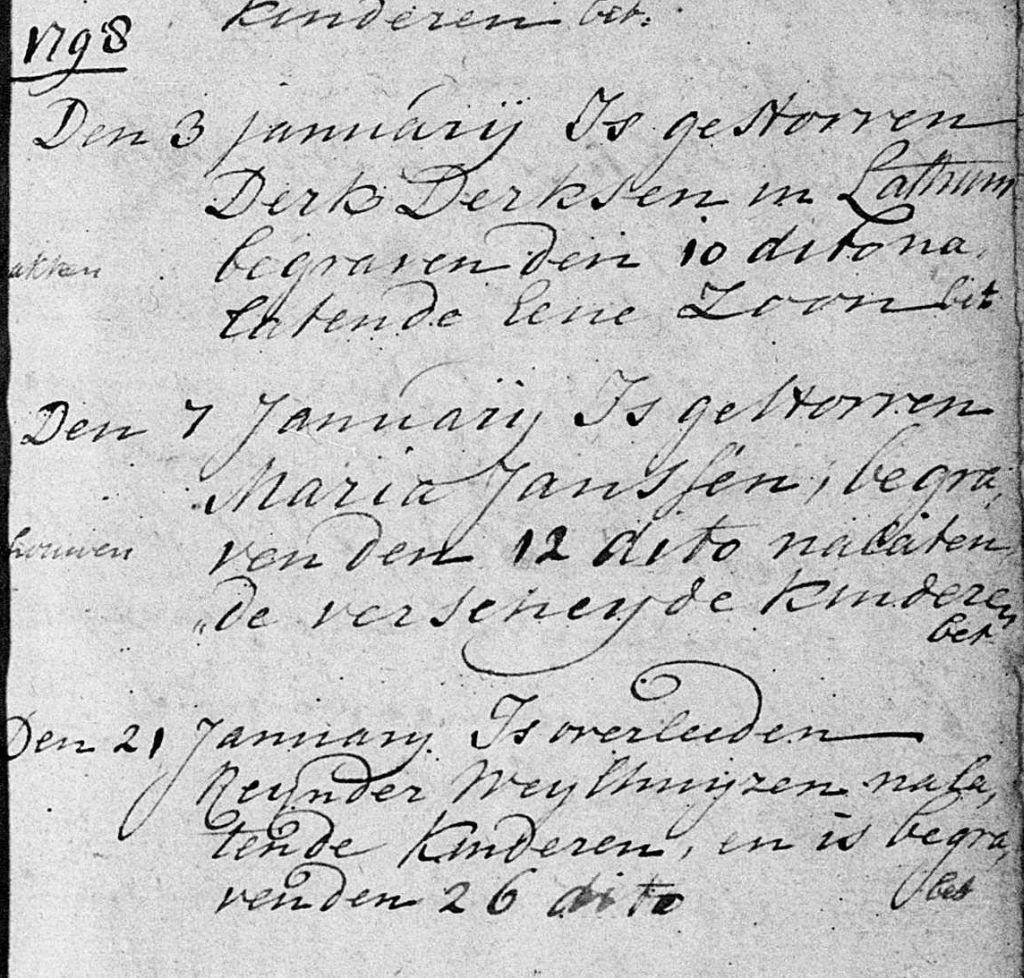 kinderen bet:
1798
Den 3 januarij Is gestorven
Derk Derksen in Lathum
begraven den 10 dito na,
akken
latende Eene Zoon bet
Den 7 Januarij Is gestorven
Maria Janssen, begra,
ven den 12 dito nalaten,
houwen
„de verscheyde kinderen
bet
Den 21 January Is overleeden
Reynder Weylhuyzen nala,
tende kinderen, en is begra,
ven den 26 dito bet